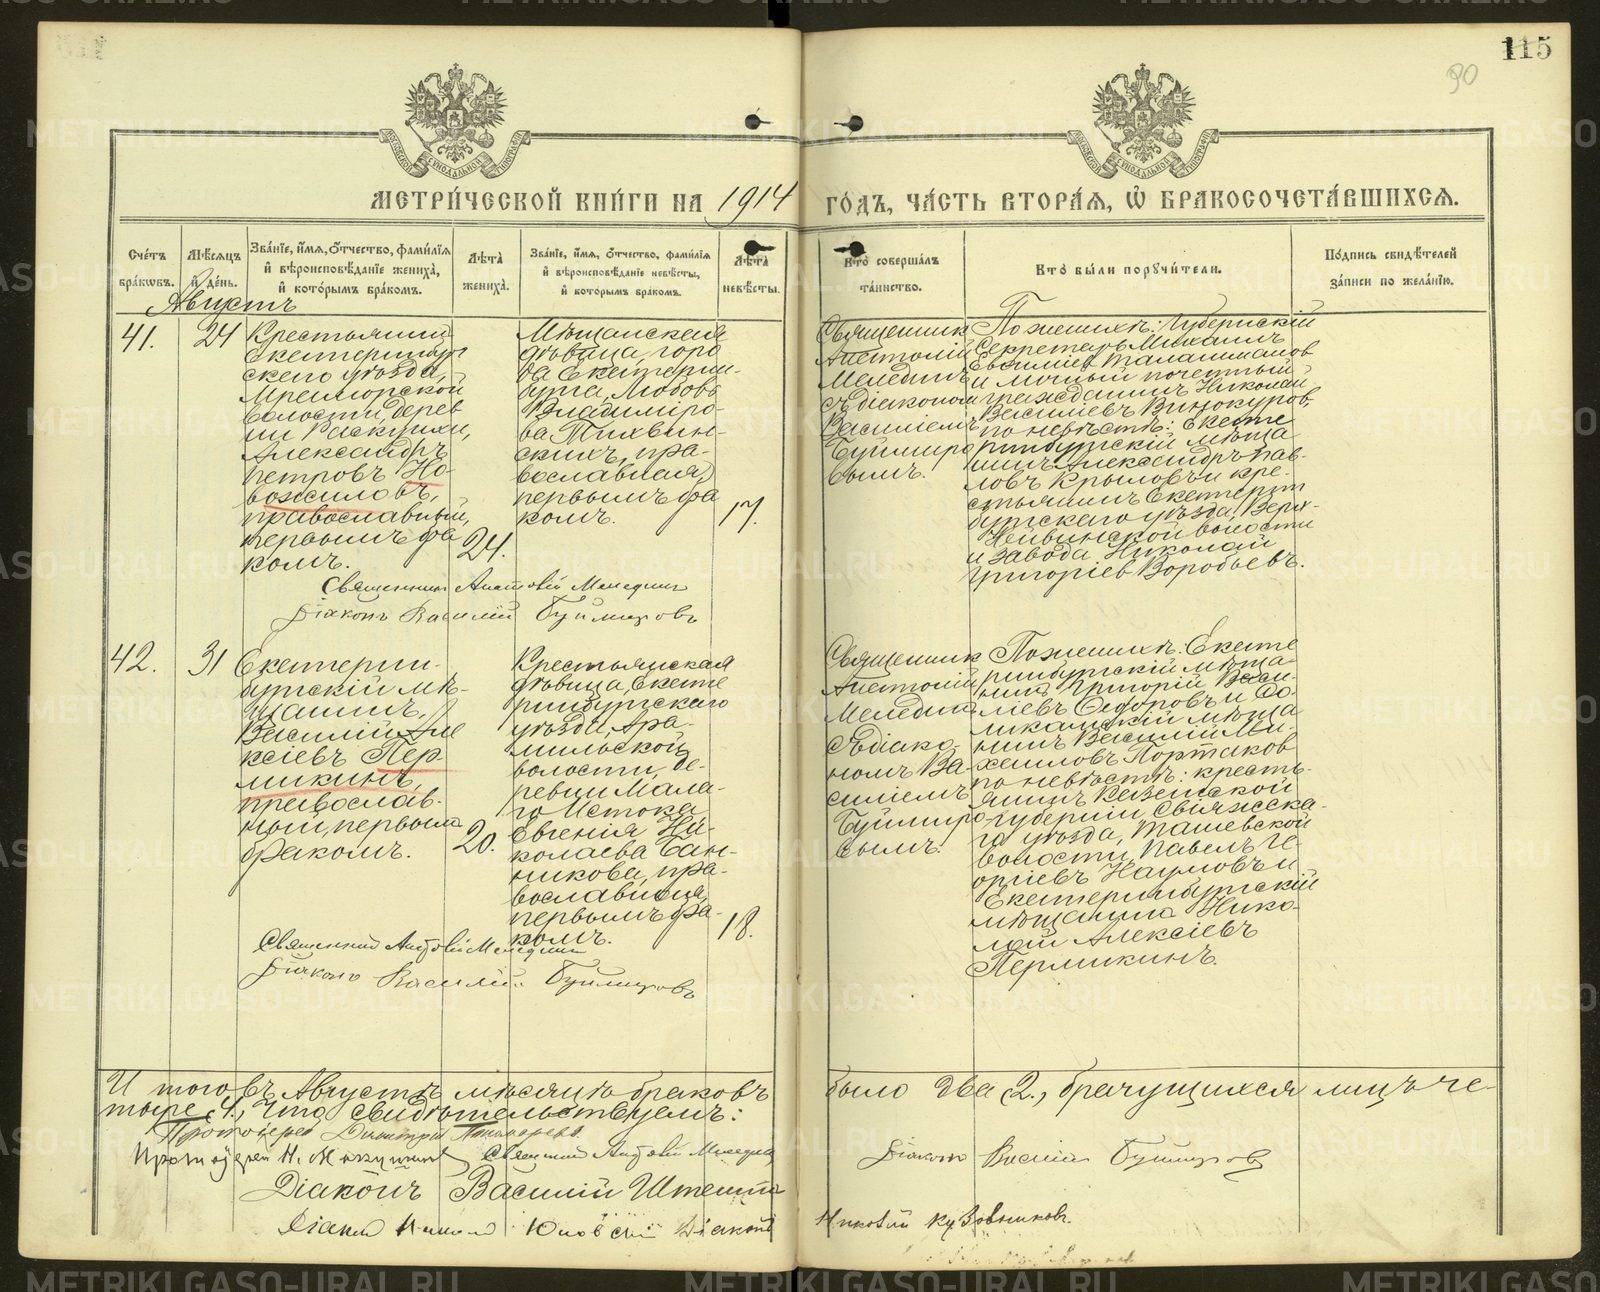 115
90
МЕТРИ́ЧЕСКОЙ КНИ́ГИ НА 1914 ГО́ДЪ, ЧА́СТЬ ВТОРА́Я, Ѡ БРАКОСОЧЕТА́ВШИХСЯ.
Сче́тъ бра́кѡвъ.
Мѣ́сяцъ и де́нь.
Зва́нїе, и́мя, ѻ́тчество, фами́лїя
и вѣроисповѣ́данїе жениха̀,
и кото́рымъ бра́комъ.
Лѣ́та жениха̀.
Зва́нїе, и́мя, ѻ́тчество, фами́лїя
и вѣроисповѣ́данїе невѣ́сты,
и кото́рымъ бра́комъ.
Лѣ́та невѣ́сты.
Кто̀ соверша́лъ
та́инство.
Кто̀ бы́ли порꙋчи́тели.
По́дпись свидѣ́телей
за́писи по жела́нїю.
Августъ
41.
24
Крестьянинъ
Екатеринбург
скаго уѣзда,
Мраморской
волости, дерев
ни Раскуихи,
Александръ
Петровъ Но-
вожиловъ,
православный,
первымъ бра
комъ.
24.
Мѣщанская
дѣвица, горо
да Екатерин-
бурга, Любовь
Владиміро-
ва Тихвин-
скихъ, пра-
вославная,
первымъ бра
комъ.
17.
Священникъ
Анатолій
Мелединъ
съ діакономъ
Василіемъ
Буйміро
вымъ.
По женихѣ: Губернскій
Секретарь Михаилъ
Евѳиміевъ Талашмановъ
и личный почетный
гражданинъ Николай
Василіевъ Винокуровъ,
по невѣстѣ: Екате
ринбургскій мѣща
нинъ Александръ Пав-
ловъ Крыловъ и кре-
стьянинъ Екатерин
бургскаго уѣзда, Верх-
Нейвинской волости
и завода Николай
Григоріев Воробьевъ.
Священникъ Анатолій Меледин
Діаконъ Василій Буймировъ
42.
31
Екатерин-
бургскій мѣ-
щанинъ,
Василій Але
ксіевъ Пер-
микинъ,
православ-
ный, первымъ
бракомъ.
20.
Крестьянская
дѣвица, Екате
ринбургскаго
уѣзда, Ара-
мильской
волости, де-
ревни Мала-
го Истока
Евгенія Ни-
колаева Бан-
никова, пра-
вославная,
первымъ бра-
комъ.
18.
Священникъ
Анатолій
Меледин
съ діако-
номъ Ва-
силіемъ
Буймиро-
вымъ.
По женихѣ: Екате
ринбургскій мѣща-
нинъ Григорій Васи-
ліевъ Ѳедоровъ и Со-
ликамскій мѣща
нинъ Василій Ми-
хеиловъ Портаков
по невѣстѣ: кресть-
янинъ Казанской
губерніи, Свіяжска-
го уѣзда, Ташевской
волости, Павелъ Ге-
оргіевъ Наумовъ и
Екатеринбургскій
мѣщанина Нико-
лай Алексіевъ
Пермикинъ.
Священникъ Анатолій Меледин
Діаконъ Василій Буймировъ
И того въ Августѣ мѣсяцѣ браковъ было два (2.), брачущихся лицъ че-
тыре (4.), что свидѣтельствуемъ:
Протоіерей Димитрій Пономаревъ
Священникъ Анатолій Меледин
Діаконъ Василій Буймировъ
Діаконъ Василій
Діаконъ
Діаконъ Николай Кузовниковъ.
METRIKI.GASO-URAL.RU